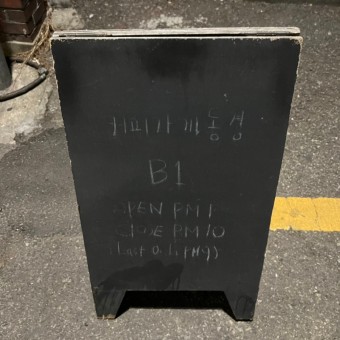 커피가게 동경
B1
OPEN PM 1
CLOSE PM 10
(Last Order PM 9)